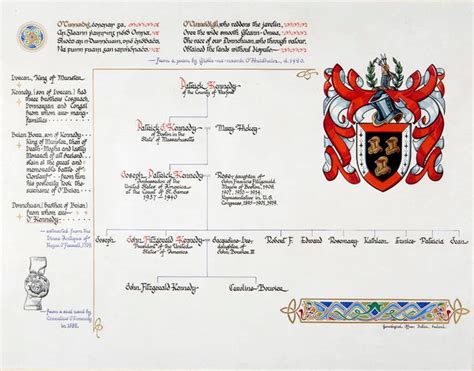 O'Cinnéidig,
O'Cinnéidigh, who reddens the javelin,
Over the wide smooth Gleann-Omra,
The race of our Donnchuan, who through valour,
Obtained the lands without dispute
From a poem by Giolla-na-naomh O'Huidhrin, d. 1420.
Lorcan, King of Munster.
Kennedy, (son of Lorcan.) had
three brothers Cosgrach,
Lonnargan and Congal
from whom are many
families:
Brian Boru, son of Kennedy
King of Munster, then of
and lastly
Monarch of all Ireland.
slain at the great and
memorable battle of
Clontarf. From him
his posterity took
the surname of O'Brien.
Donnchuan: (brother of Brian)
from whom are
O'Kennedy
extracted from the
From a seal used by
in
Patrick Kennedy
of the County of Wexford
Patrick J. Kennedy
of Boston in the
State of Massachusetts
Mary Hickey
Joseph Patrick Kennedy
Ambassador of the
United States of America
at the Court of St. James
1937 - 1940
Rose, daughter of
John Francis Fitzgerald
Mayor of Boston, 1906,
1907, 1910 - 1914
Representative in U.S.
Congress, 1895 - 1901, 1919.
Joseph
John Fitzgerald Kennedy
President of the United
States of America
Jacqueline Lee
daughter of
John Bouvier III
Robert F.
Edward
Rosemary
Kathleen
Eunice
Patricia
Jean
John Fitzgerald Kennedy
Caroline Bouvier
Genealogical Office, Dublin, Ireland.